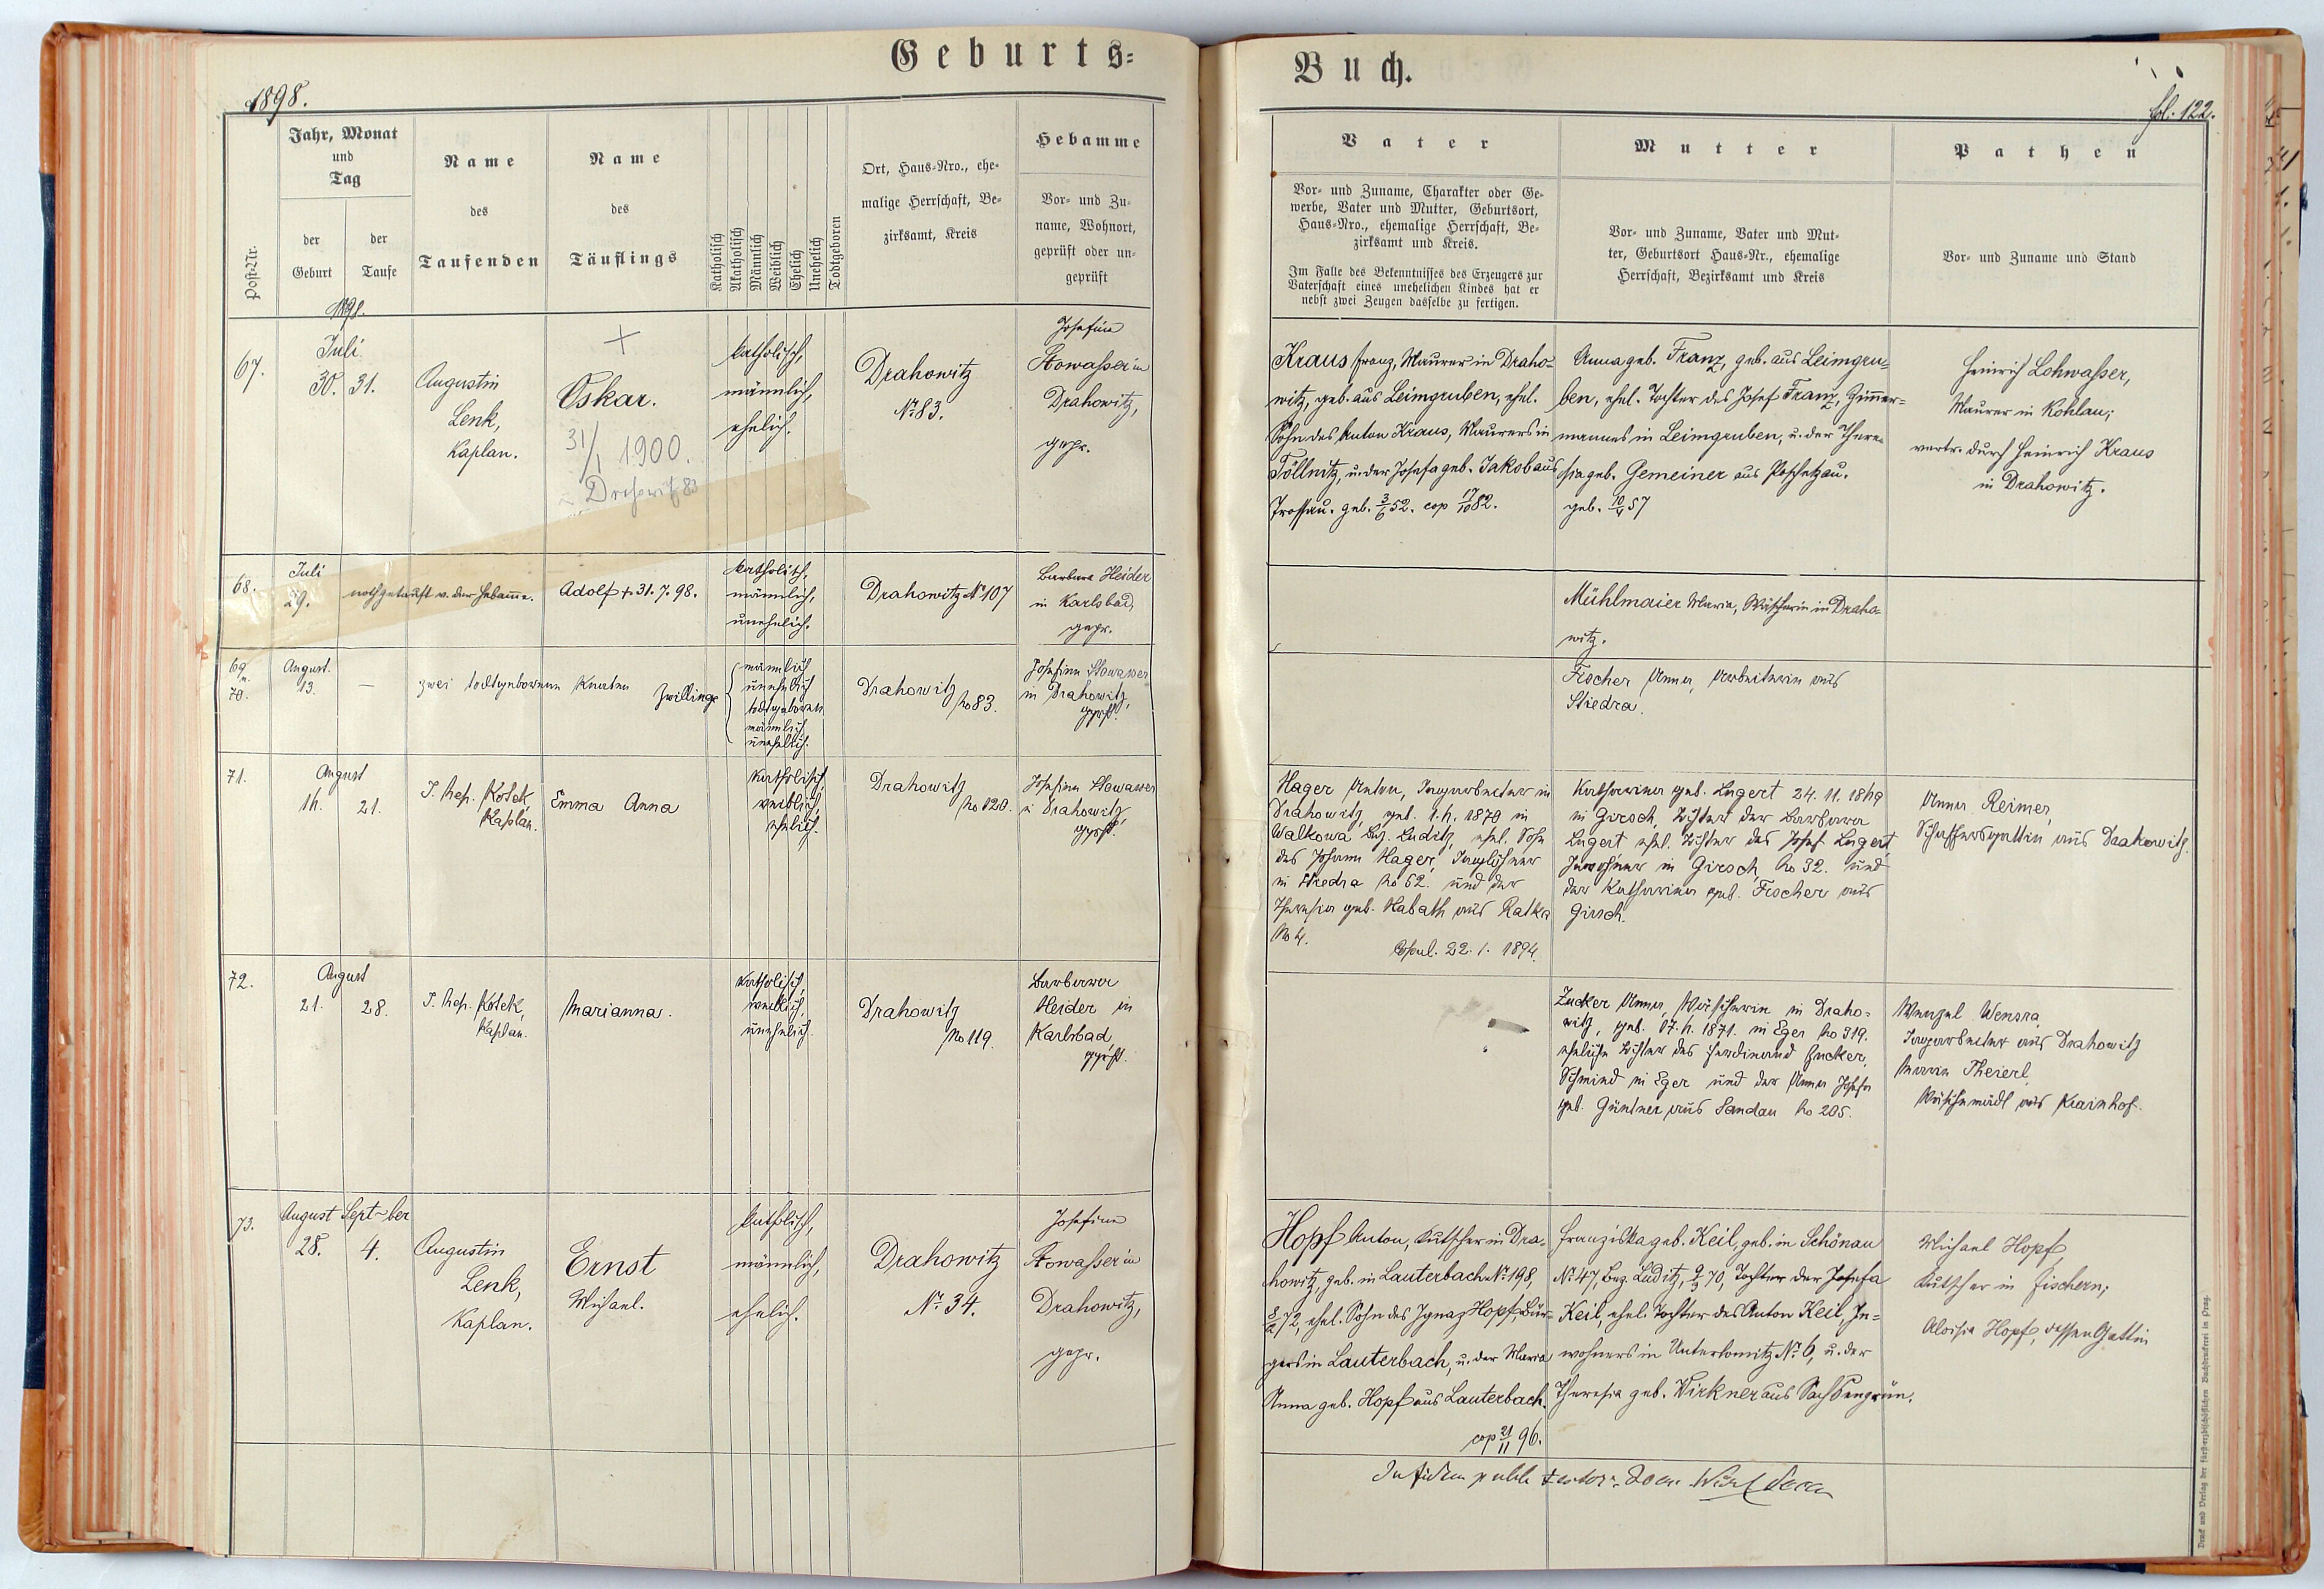 Geburts-
Buch.
1898.
fol. 122.
Post-Nr.
Jahr, Monat
und
Tag
der
Geburt
der
Taufe
Name
des
Taufenden
Name
des
Täuflings
Katholisch
Akatholisch
Männlich
Weiblich
Ehelich
Unehelich
Todtgeboren
Ort, Haus-Nro., ehe-
malige Herrschaft, Be-
zirksamt, Kreis
Hebamme
Vor- und Zu-
name, Wohnort,
geprüft oder un-
geprüft
Vater
Vor- und Zuname, Charakter oder Ge-
werbe, Vater und Mutter, Geburtsort,
Haus-Nro., ehemalige Herrschaft, Be-
zirksamt und Kreis.
Im Falle des Bekenntnisses des Erzeugers zur
Vaterschaft eines unehelichen Kindes hat er
nebst zwei Zeugen dasselbe zu fertigen.
Mutter
Vor- und Zuname, Vater und Mut-
ter, Geburtsort Haus-Nr., ehemalige
Herrschaft, Bezirksamt und Kreis
Pathen
Vor- und Zuname und Stand
1898.
67.
Juli
30. 31.
Augustin
Lenk,
Kaplan.
Oskar.
31/1 1900.
katholisch,
männlich,
ehelich.
Drahowitz
No 83.
Josefine
Stowasser in
Drahowitz,
gepr.
Kraus Franz, Maurer in Draho-
witz, geb. aus Leimgruben, ehel.
Sohn des Anton Kraus, Maurers in
Töllnitz, u. der Josefa geb. Jakob aus
Trossau. geb. 3/6 52. cop 17/10 82.
Anna geb. Franz, geb. aus Leimgru-
ben, ehel. Tochter des Josef Franz, Zimmer-
mannes in Leimgruben, u. der There-
sia geb. Gemeiner aus Poschetzau.
geb. 10/4 57
Heinrich Lohwasser,
Maurer in Kohlau;
vertr. durch Heinrich Kraus
in Drahowitz.
68.
Juli
29.
nothgetauft v. der Hebamme.
Adolf + 31.7.98.
katholisch,
männlich,
unehelich.
Drahowitz No 107
Barbara Heider
in Karlsbad,
gepr.
Mühlmaier Maria, Wäscherin in Draho-
witz.
69
u.
70.
August.
13.
—
zwei todtgeborene Knaben
Zwillinge
männlich
unehelich
todtgeboren
männlich,
unehelich.
Drahowitz
No 83.
Josefine Stowasser
in Drahowitz,
gepr.
Fischer Anna, Arbeiterin aus
Stiedra.
71.
August
14. 21.
J. Nep. Kotek,
Kaplan.
Emma Anna
katholisch,
weiblich,
ehelich.
Drahowitz
No 120.
Josefine Stowasser
in Drahowitz,
gepr.
Hager Anton, Tagarbeiter in
Drahowitz, geb. 1.4. 1870 in
Walkowa Bez. Luditz, ehel. Sohn
des Johann Hager, Taglöhner
in Stiedra No 62. und der
Theresia geb. Habath aus Ratka
No 4.
Copul. 22.1. 1894.
Katharina geb. Lugert 24.11.1869
in Girsch, Tochter der Barbara
Lugert ehel. Tochter des Josef Lugert
Inwohner in Girsch, No 32. und
der Katharina geb. Fischer aus
Girsch.
Anna Reimer,
Schaffersgattin aus Drahowitz.
72.
August
21. 28.
J. Nep. Kotek,
Kaplan.
Marianna.
katholisch,
weiblich,
unehelich.
Drahowitz
No 119.
Barbara
Heider in
Karlsbad,
gepr.
Zucker Anna, Wäscherin in Draho-
witz, geb. 17.4. 1871. in Eger No 319.
eheliche Tochter des Ferdinand Zucker,
Schmied in Eger und der Anna Josefa
geb. Güntner aus Sandau No 205.
Wenzel Wensra,
Tagarbeiter aus Drahowitz
Maria Theierl,
Wäschemädl aus Krainhof.
73.
August Sept-ber
28. 4.
Augustin
Lenk,
Kaplan.
Ernst
Michael.
katholisch,
männlich,
ehelich.
Drahowitz
No 34.
Josefine
Stowasser in
Drahowitz,
gepr.
Hopf Anton, Kutscher in Dra-
howitz, geb. in Lauterbach No 198,
8/2 72, ehel. Sohn des Ignaz Hopf, Bür-
gers in Lauterbach, u. der Maria
Anna geb. Hopf aus Lauterbach.
cop 21/11 96.
Franziska geb. Keil, geb. in Schönau
No 47, Bez. Luditz, 9/3 70, Tochter der Josefa
Keil, ehel. Tochter des Anton Keil, In-
wohners in Unterlomitz No 6, u. der
Theresia geb. Wirkner aus Sachsengrün.
Michael Hopf,
Kutscher in Fischern;
Aloisia Hopf, dessen Gattin
In fidem
Druck und Verlag der fürst-erzbischöflichen Buchdruckerei in Prag.